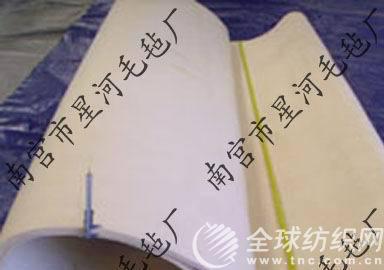 南宫市星河毛毡厂
南宫市星河毛毡厂
南宫市星河毛毡厂
全球纺织网
www.tnc.com.cn